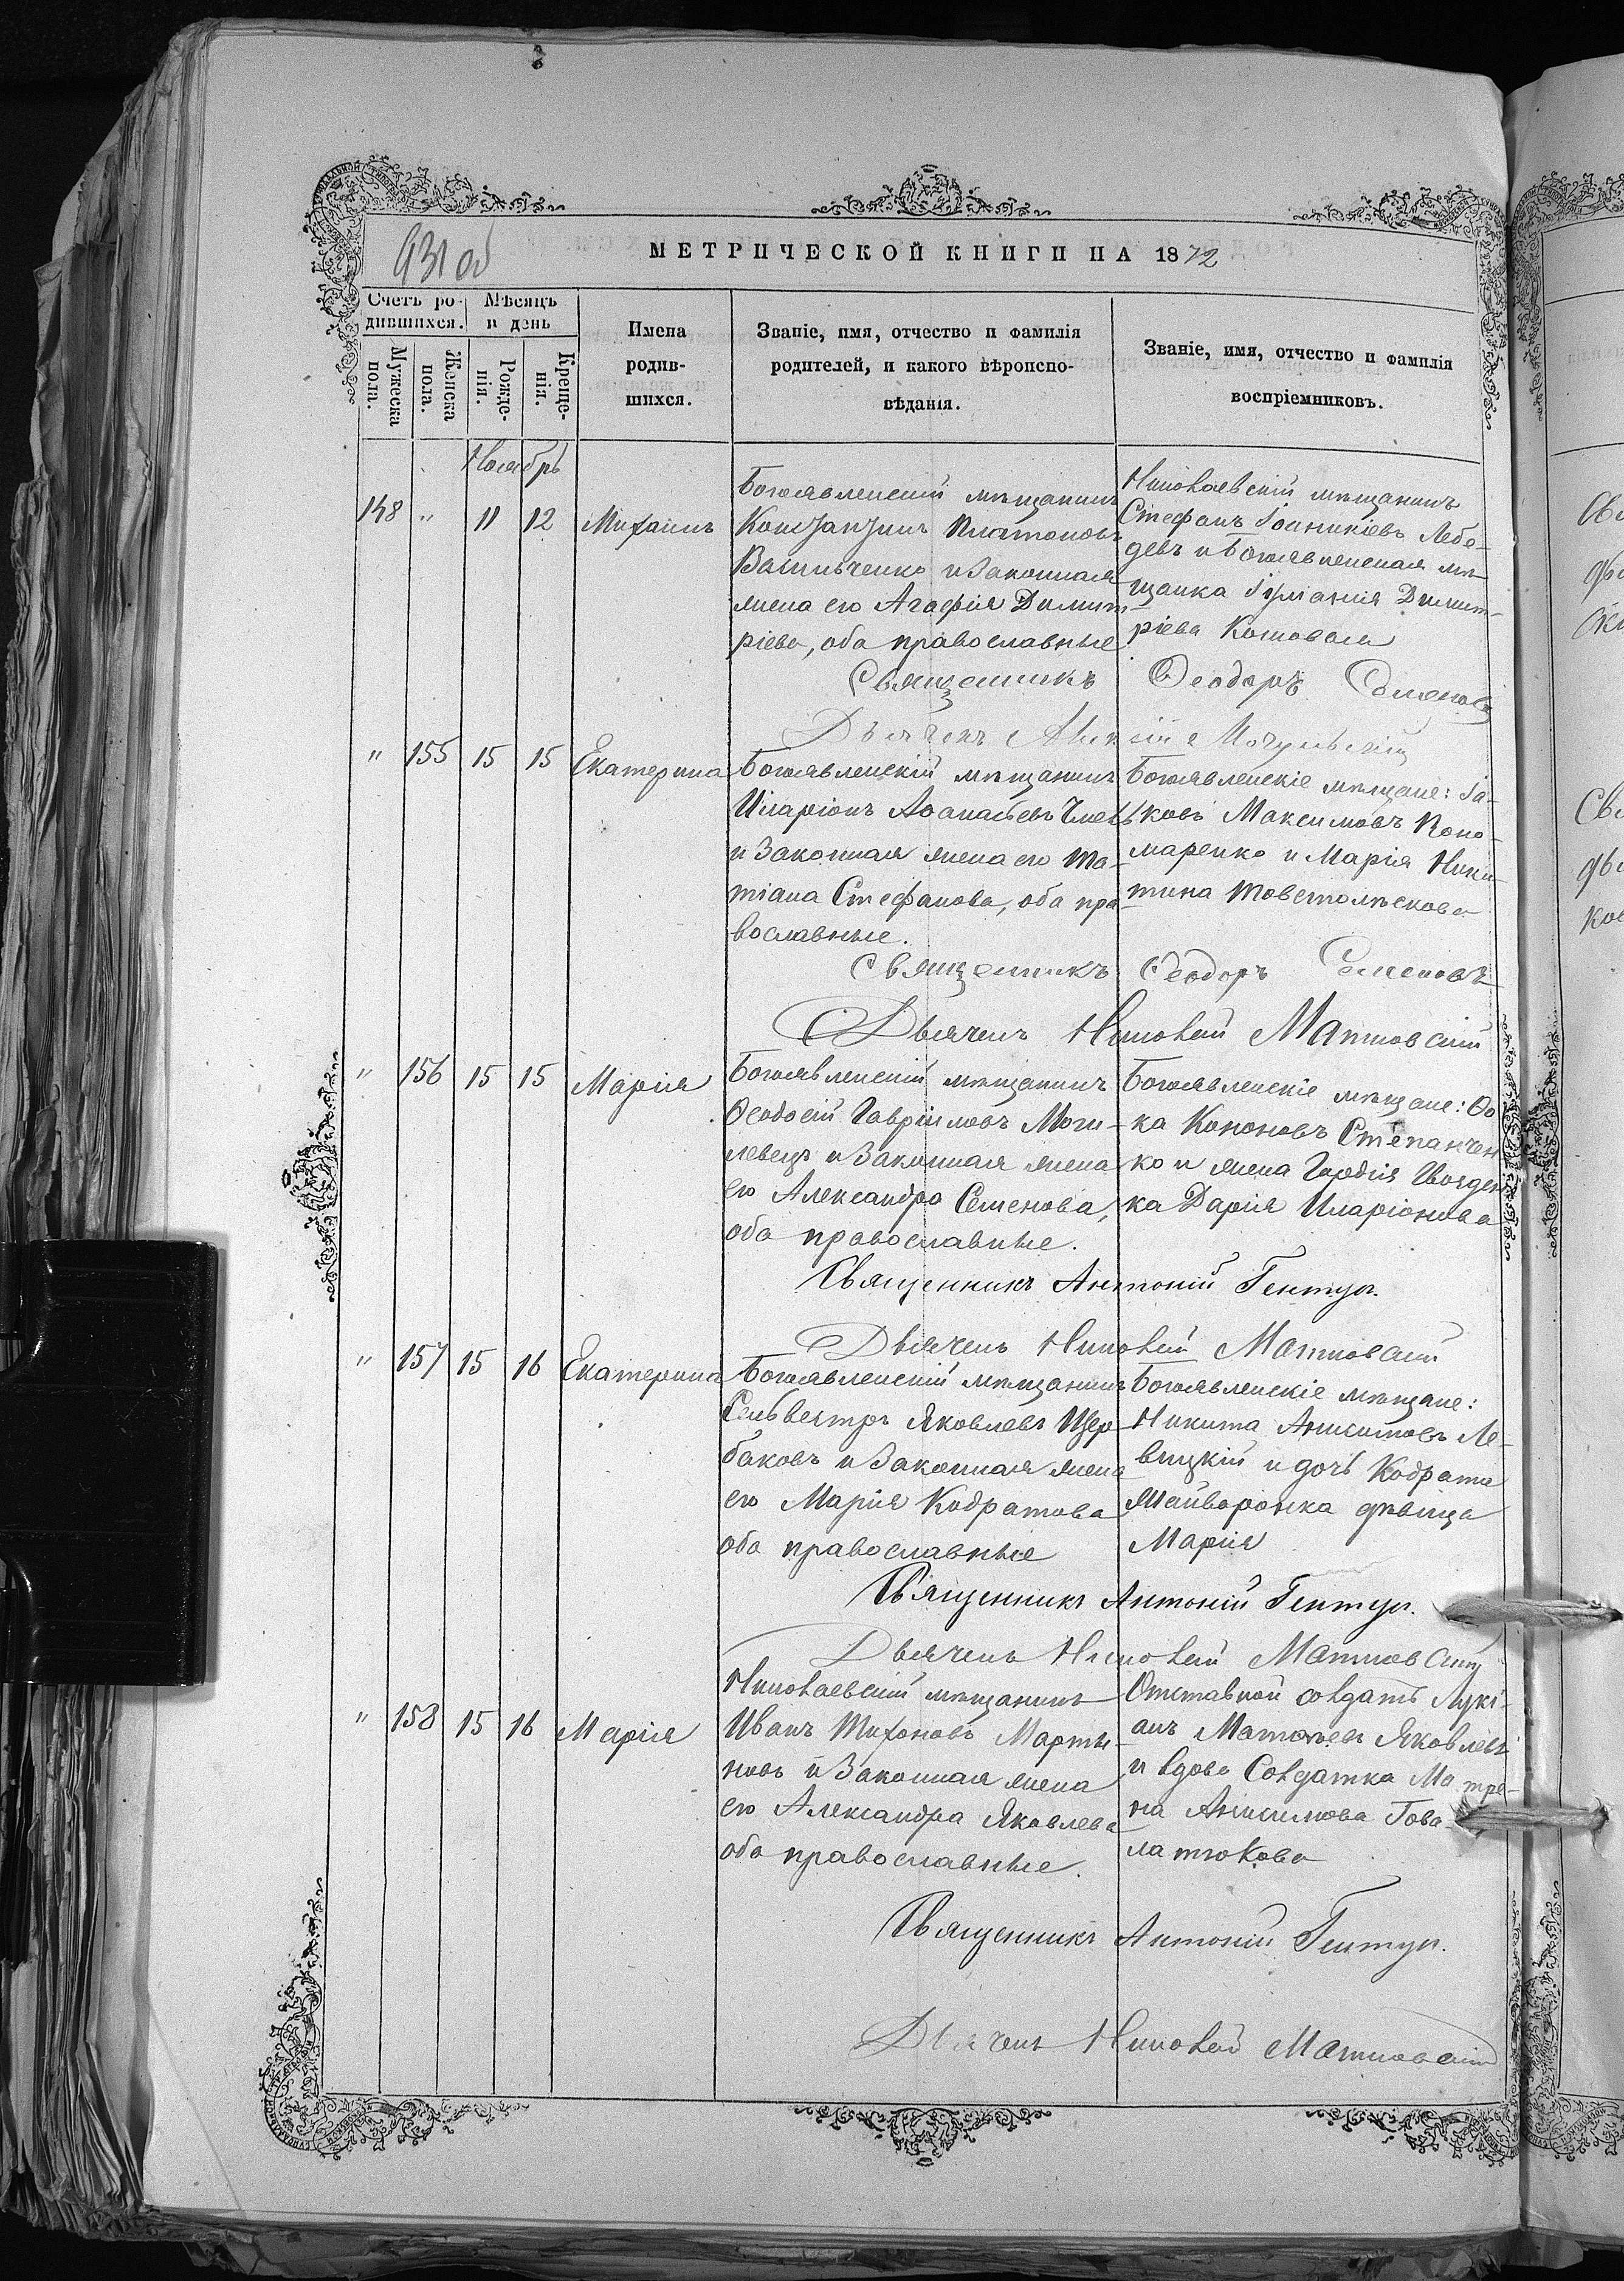 931 об
МЕТРИЧЕСКОЙ КНИГИ НА 1872
Счетъ ро-
дившихся.
Мѣсяцъ
и день
Мужеска
пола.
Женска
пола.
Рожде-
нія.
Креще-
нія.
Имена
родив-
шихся.
Званіе, имя, отчество и фамилія
родителей, и какого вѣроиспо-
вѣданія.
Званіе, имя, отчество и фамилія
воспріемниковъ.
Ноябрь
148 " 11 12 Михаилъ
Богоявленскій мѣщанинъ
Константинъ Платоновъ
Васильченко и законная
жена его Агафія Димит-
ріева, оба православные
Николаевскій мѣщанинъ
Стефанъ Іоанникіевъ Лебе-
девъ и Богоявленская мѣ-
щанка Димит-
ріева
Священникъ Ѳеодоръ Семеновъ
Дьячекъ
" 155 15 15 Екатерина
Богоявленскій мѣщанинъ
Иларіонъ Аѳанасьевъ
и законная жена его Та-
тіана Стефанова, оба пра-
вославные.
Богоявленскіе мѣщане: Іа-
ковъ Максимовъ Поно-
маренко и Марія Ники-
тина
Священникъ Ѳеодоръ Семеновъ
Дьячекъ Николай Матковскій
" 156 15 15 Марія
Богоявленскій мѣщанинъ
Ѳеодосій Гавріиловъ Моги-
левецъ и законная жена
его Александра Семенова,
оба православные.
Богоявленскіе мѣщане: Ѳо-
ка Кононовъ Степанчен
ко и жена Гордія Гвозден
ка Дарія Иларіонова
Священникъ Антоній Гентуг.
Дьячекъ Николай Матковскій
" 157 15 16 Екатерина
Богоявленскій мѣщанинъ
Сильвестръ Яковлевъ Щер-
баковъ и законная жена
его Марія Кодратова
оба православные
Богоявленскіе мѣщане:
Никита Аникитовъ Ле-
вицкій и дочь Кодрата
Майворонка дѣвица
Марія
Священникъ Антоній Гентуг.
Дьячекъ Николай Матковскій
" 158 15 16 Марія
Николаевскій мѣщанинъ
Иванъ Тихоновъ Марты-
новъ и законная жена
его Александра Яковлева
оба православные.
Отставной солдатъ Лукі-
анъ Матѳеевъ Яковлевъ
и вдова солдатка Матре-
на Анисимова Гова-
латюкова
Священникъ Антоній Гентуг.
Дьячекъ Николай Матковскій